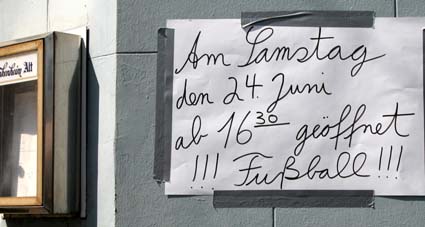 Am Samstag
den 24. Juni
ab 16 30 geöffnet
!!! Fußball !!!
Alt